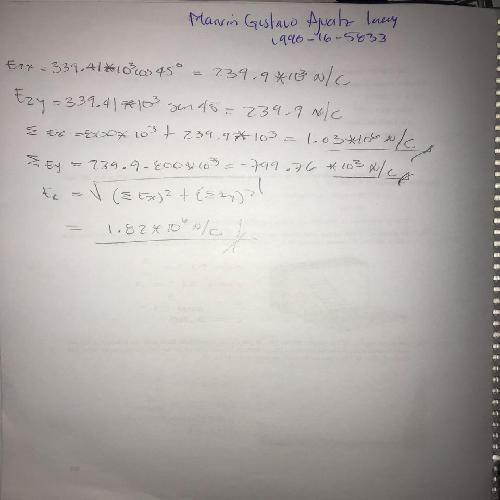 Marvin Gustavo
1990-16-5833
E2x = 339.41*10³cos 45° = 239.9 *10³ N/C
E2y = 339.41*10³ sen 45 = 239.9 N/C
Σ Ex = 800*10³ + 239.9*10³ = 1.03*10⁶ N/C
Σ Ey = 239.9-800*10³ = -799.76 *10³ N/C
= √(ΣEx)² + (ΣEy)²
= 1.82*10⁶ N/C